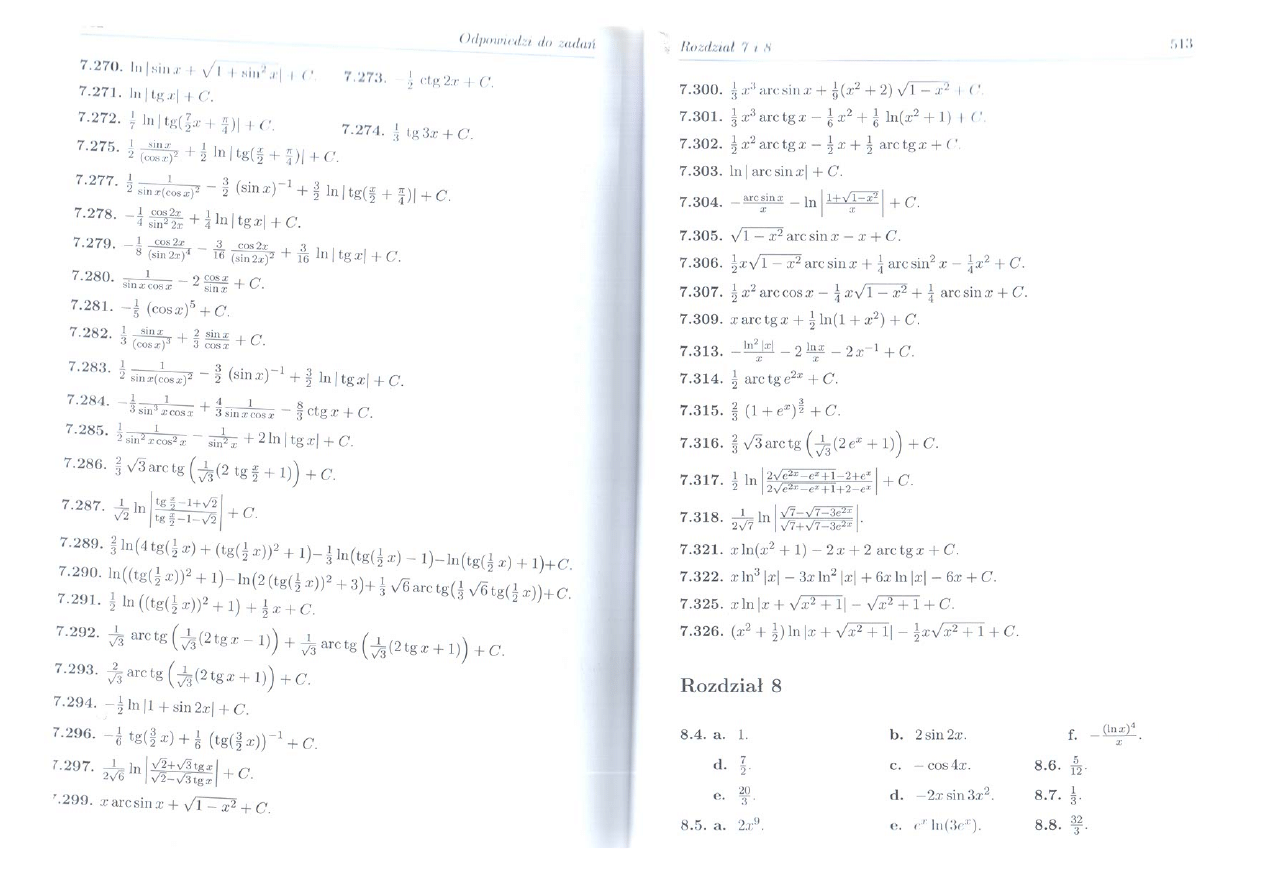 Odpowiedzi do zadań
7.270. ln |sin x + √(1 + sin² x)| + C. 7.273. −1/2 ctg 2x + C.
7.271. ln | tg x| + C.
7.272. 1/7 ln | tg(7/2 x + π/4)| + C. 7.274. 1/3 tg 3x + C.
7.275. 1/2 sin x/(cos x)² + 1/2 ln | tg(x/2 + π/4)| + C.
7.277. 1/2 1/(sin x(cos x)²) − 3/2 (sin x)⁻¹ + 3/2 ln | tg(x/2 + π/4)| + C.
7.278. −1/4 cos 2x/sin² 2x + 1/4 ln | tg x| + C.
7.279. −1/8 cos 2x/(sin 2x)⁴ − 3/16 cos 2x/(sin 2x)² + 3/16 ln | tg x| + C.
7.280. 1/(sin x cos x) − 2 cos x/sin x + C.
7.281. −1/5 (cos x)⁵ + C.
7.282. 1/3 sin x/(cos x)³ + 2/3 sin x/cos x + C.
7.283. 1/2 1/(sin x(cos x)²) − 3/2 (sin x)⁻¹ + 3/2 ln | tg x| + C.
7.284. −1/3 1/(sin³ x cos x) + 4/3 1/(sin x cos x) − 8/3 ctg x + C.
7.285. 1/2 1/(sin² x cos² x) − 1/sin² x + 2 ln | tg x| + C.
7.286. 2/3 √3 arc tg (1/√3 (2 tg x/2 + 1)) + C.
7.287. 1/√2 ln |(tg x/2 −1+√2)/(tg x/2 −1−√2)| + C.
7.289. 2/3 ln(4 tg(1/2 x) + (tg(1/2 x))² + 1)−1/3 ln(tg(1/2 x) − 1)−ln(tg(1/2 x) + 1)+C.
7.290. ln((tg(1/2 x))² + 1)−ln(2 (tg(1/2 x))² + 3)+1/3 √6 arc tg(1/3 √6 tg(1/2 x))+C.
7.291. 1/2 ln ((tg(1/2 x))² + 1) + 1/2 x + C.
7.292. 1/√3 arc tg (1/√3 (2 tg x − 1)) + 1/√3 arc tg (1/√3 (2 tg x + 1)) + C.
7.293. 2/√3 arc tg (1/√3 (2 tg x + 1)) + C.
7.294. −1/2 ln |1 + sin 2x| + C.
7.296. −1/6 tg(3/2 x) + 1/6 (tg(3/2 x))⁻¹ + C.
7.297. 1/(2√6) ln |(√2+√3 tg x)/(√2−√3 tg x)| + C.
7.299. x arc sin x + √(1 − x²) + C.
Rozdział 7 i 8 513
7.300. 1/3 x³ arc sin x + 1/9 (x² + 2) √(1 − x²) + C.
7.301. 1/3 x³ arc tg x − 1/6 x² + 1/6 ln(x² + 1) + C.
7.302. 1/2 x² arc tg x − 1/2 x + 1/2 arc tg x + C.
7.303. ln | arc sin x| + C.
7.304. −(arc sin x)/x − ln |(1+√(1−x²))/x| + C.
7.305. √(1 − x²) arc sin x − x + C.
7.306. 1/2 x√(1 − x²) arc sin x + 1/4 arc sin² x − 1/4 x² + C.
7.307. 1/2 x² arc cos x − 1/4 x√(1 − x²) + 1/4 arc sin x + C.
7.309. x arc tg x + 1/2 ln(1 + x²) + C.
7.313. −(ln² |x|)/x − 2 (ln x)/x − 2 x⁻¹ + C.
7.314. 1/2 arc tg e²ˣ + C.
7.315. 2/3 (1 + eˣ)^(3/2) + C.
7.316. 2/3 √3 arc tg (1/√3 (2 eˣ + 1)) + C.
7.317. 1/2 ln |(2√(e²ˣ−eˣ+1)−2+eˣ)/(2√(e²ˣ−eˣ+1)+2−eˣ)| + C.
7.318. 1/(2√7) ln |(√7−√(7−3e²ˣ))/(√7+√(7−3e²ˣ))|.
7.321. x ln(x² + 1) − 2x + 2 arc tg x + C.
7.322. x ln³ |x| − 3x ln² |x| + 6x ln |x| − 6x + C.
7.325. x ln |x + √(x² + 1)| − √(x² + 1) + C.
7.326. (x² + 1/2) ln |x + √(x² + 1)| − 1/2 x√(x² + 1) + C.
Rozdział 8
8.4. a. 1. b. 2 sin 2x. f. −(ln x)⁴/x.
d. 7/2. c. − cos 4x. 8.6. 5/12.
e. 20/3. d. −2x sin 3x². 8.7. 1/3.
8.5. a. 2x⁹. e. eˣ ln(3eˣ). 8.8. 32/3.